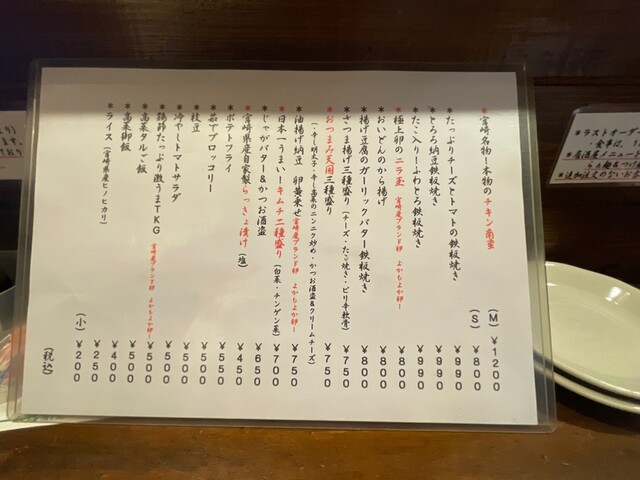 ＊宮崎名物！本物のチキン南蛮
（M）￥1200
（S）￥800
＊たっぷりチーズとトマトの鉄板焼き ￥990
＊とろろ納豆鉄板焼き ￥990
＊たこ入り！ふわとろ鉄板焼き ￥990
＊極上卵のニラ玉 宮崎産ブランド卵 よかもよか卵ー ￥800
＊おいどんのから揚げ ￥800
＊揚げ豆腐のガーリックバター鉄板焼き ￥800
＊さつま揚げ三種盛り（チーズ・たこ焼き・ピリ辛軟骨） ￥750
＊おつまみ天国三種盛り ￥750
（・辛し明太子・辛し高菜のニンニク炒め・かつお酒盗＆クリームチーズ）
＊油揚げ納豆 卵黄乗せ 宮崎産ブランド卵 よかもよか卵ー ￥750
＊日本一うまい！キムチ二種盛り（白菜・チンゲン菜） ￥700
＊じゃがバター＆かつお酒盗 ￥650
＊宮崎県産自家製らっきょ漬け（塩） ￥450
＊ポテトフライ ￥550
＊茹でブロッコリー ￥550
＊枝豆 ￥500
＊冷やしトマトサラダ ￥500
＊鶏節たっぷり激うまTKG 宮崎産ブランド卵 よかもよか卵ー ￥500
＊高菜タルご飯 ￥500
＊高菜御飯 ￥400
＊ライス（宮崎県産ヒノヒカリ） ￥250
（小）￥200
（税込）
＊ラストオーダ
＊居酒屋メニュー